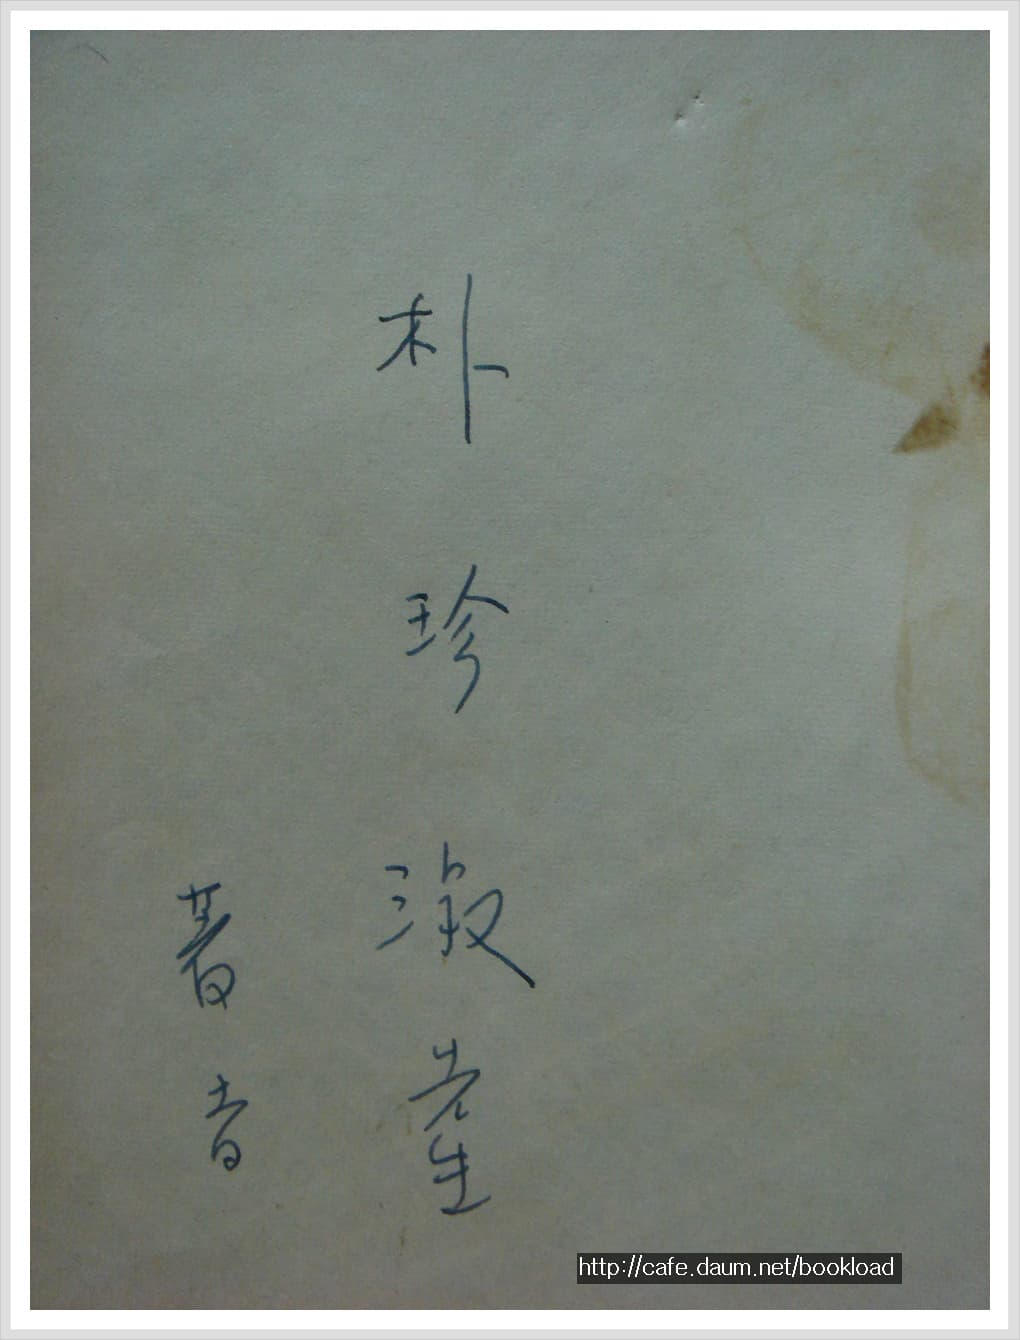 朴珍淑先生
著者
http://cafe.daum.net/bookload